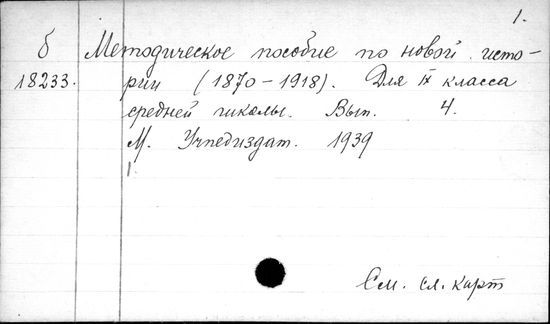 1.
б Методическое пособие по новой исто-
18233. рии (1870-1918). Для IX класса
средней школы. Вып. 4.
М. Учпедиздат. 1939
См. сл. карт